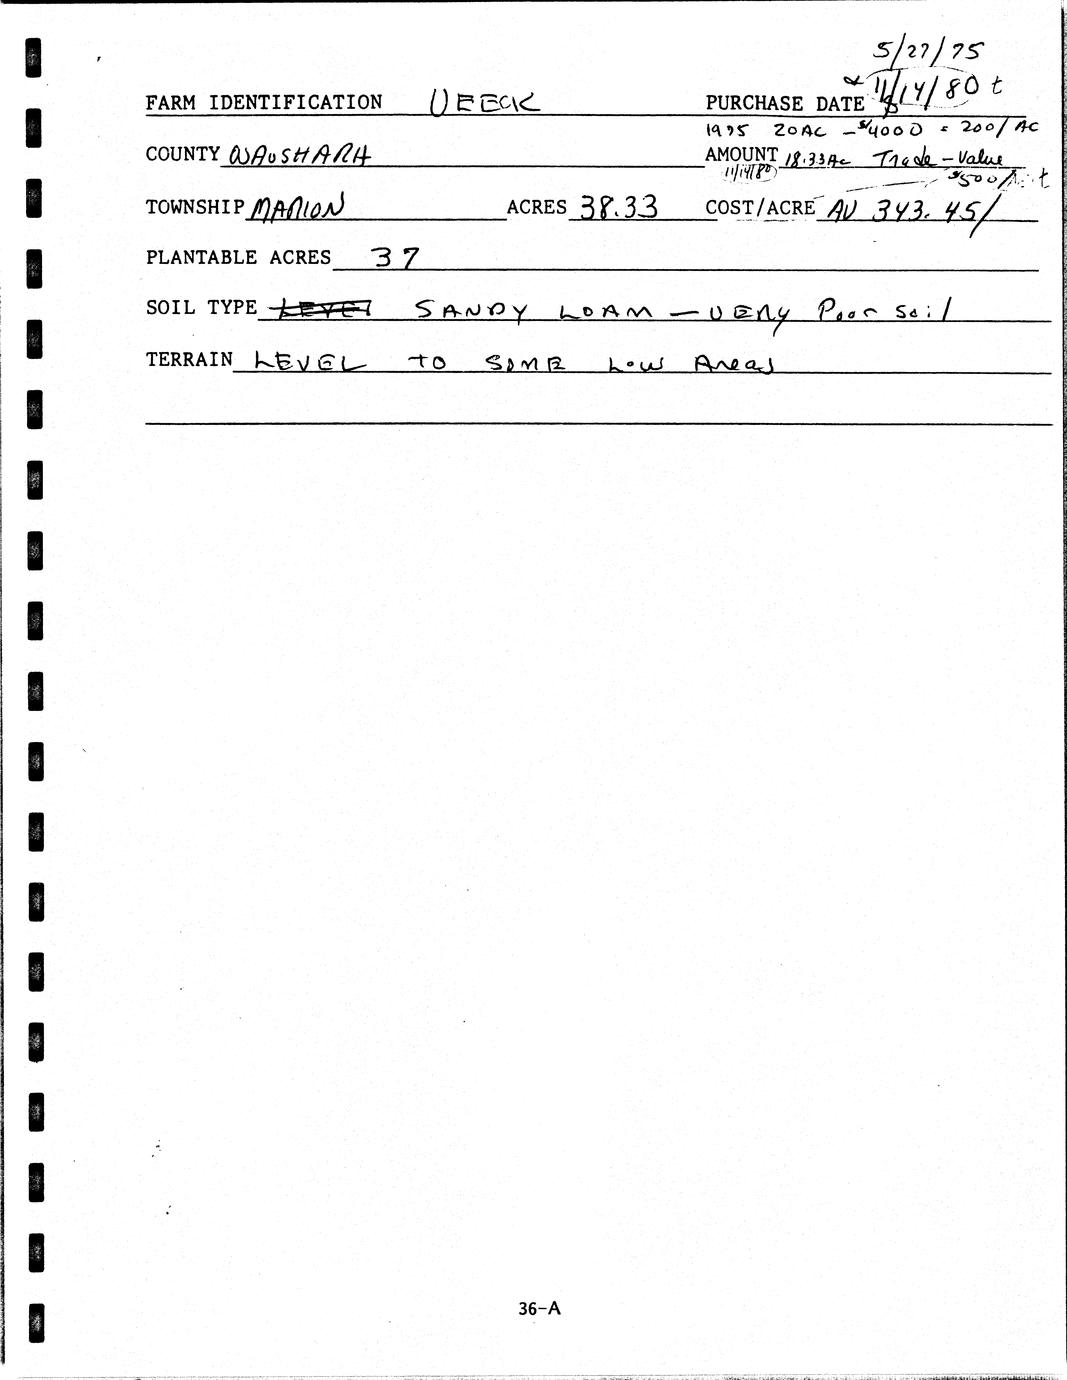 5/27/75
FARM IDENTIFICATION UEECK PURCHASE DATE & 11/14/80 t
1975 20AC - $4000 = 200/AC
COUNTY WAUSHARA AMOUNT 18.33Ac Trade - Value
11/14/80 $500/
TOWNSHIP MARION ACRES 38.33 COST/ACRE AV 343.45/
PLANTABLE ACRES 37
SOIL TYPE LEVEL SANDY LOAM - VERY Poor Soil
TERRAIN LEVEL TO SOME Low Areas
36-A